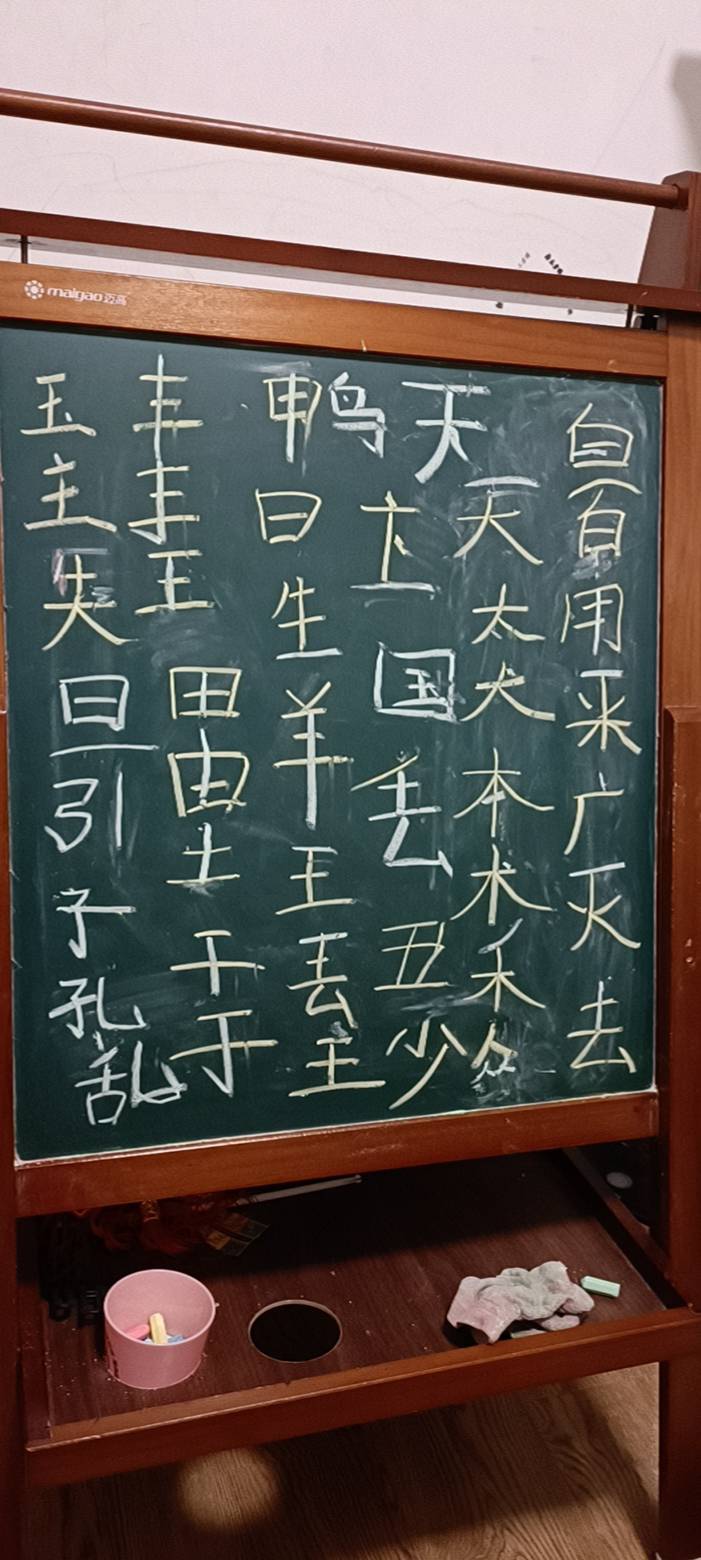 maigao 迈高
玉 丰 鸭 天 白
主 丰 曰 卞 天 自
失 王 生 太 用
曰 田 羊 国 犬 采
引 由 丢 本 广
子 土 王 术 灭
孔 干 丢 丑 禾 去
乱 于 主 少 众